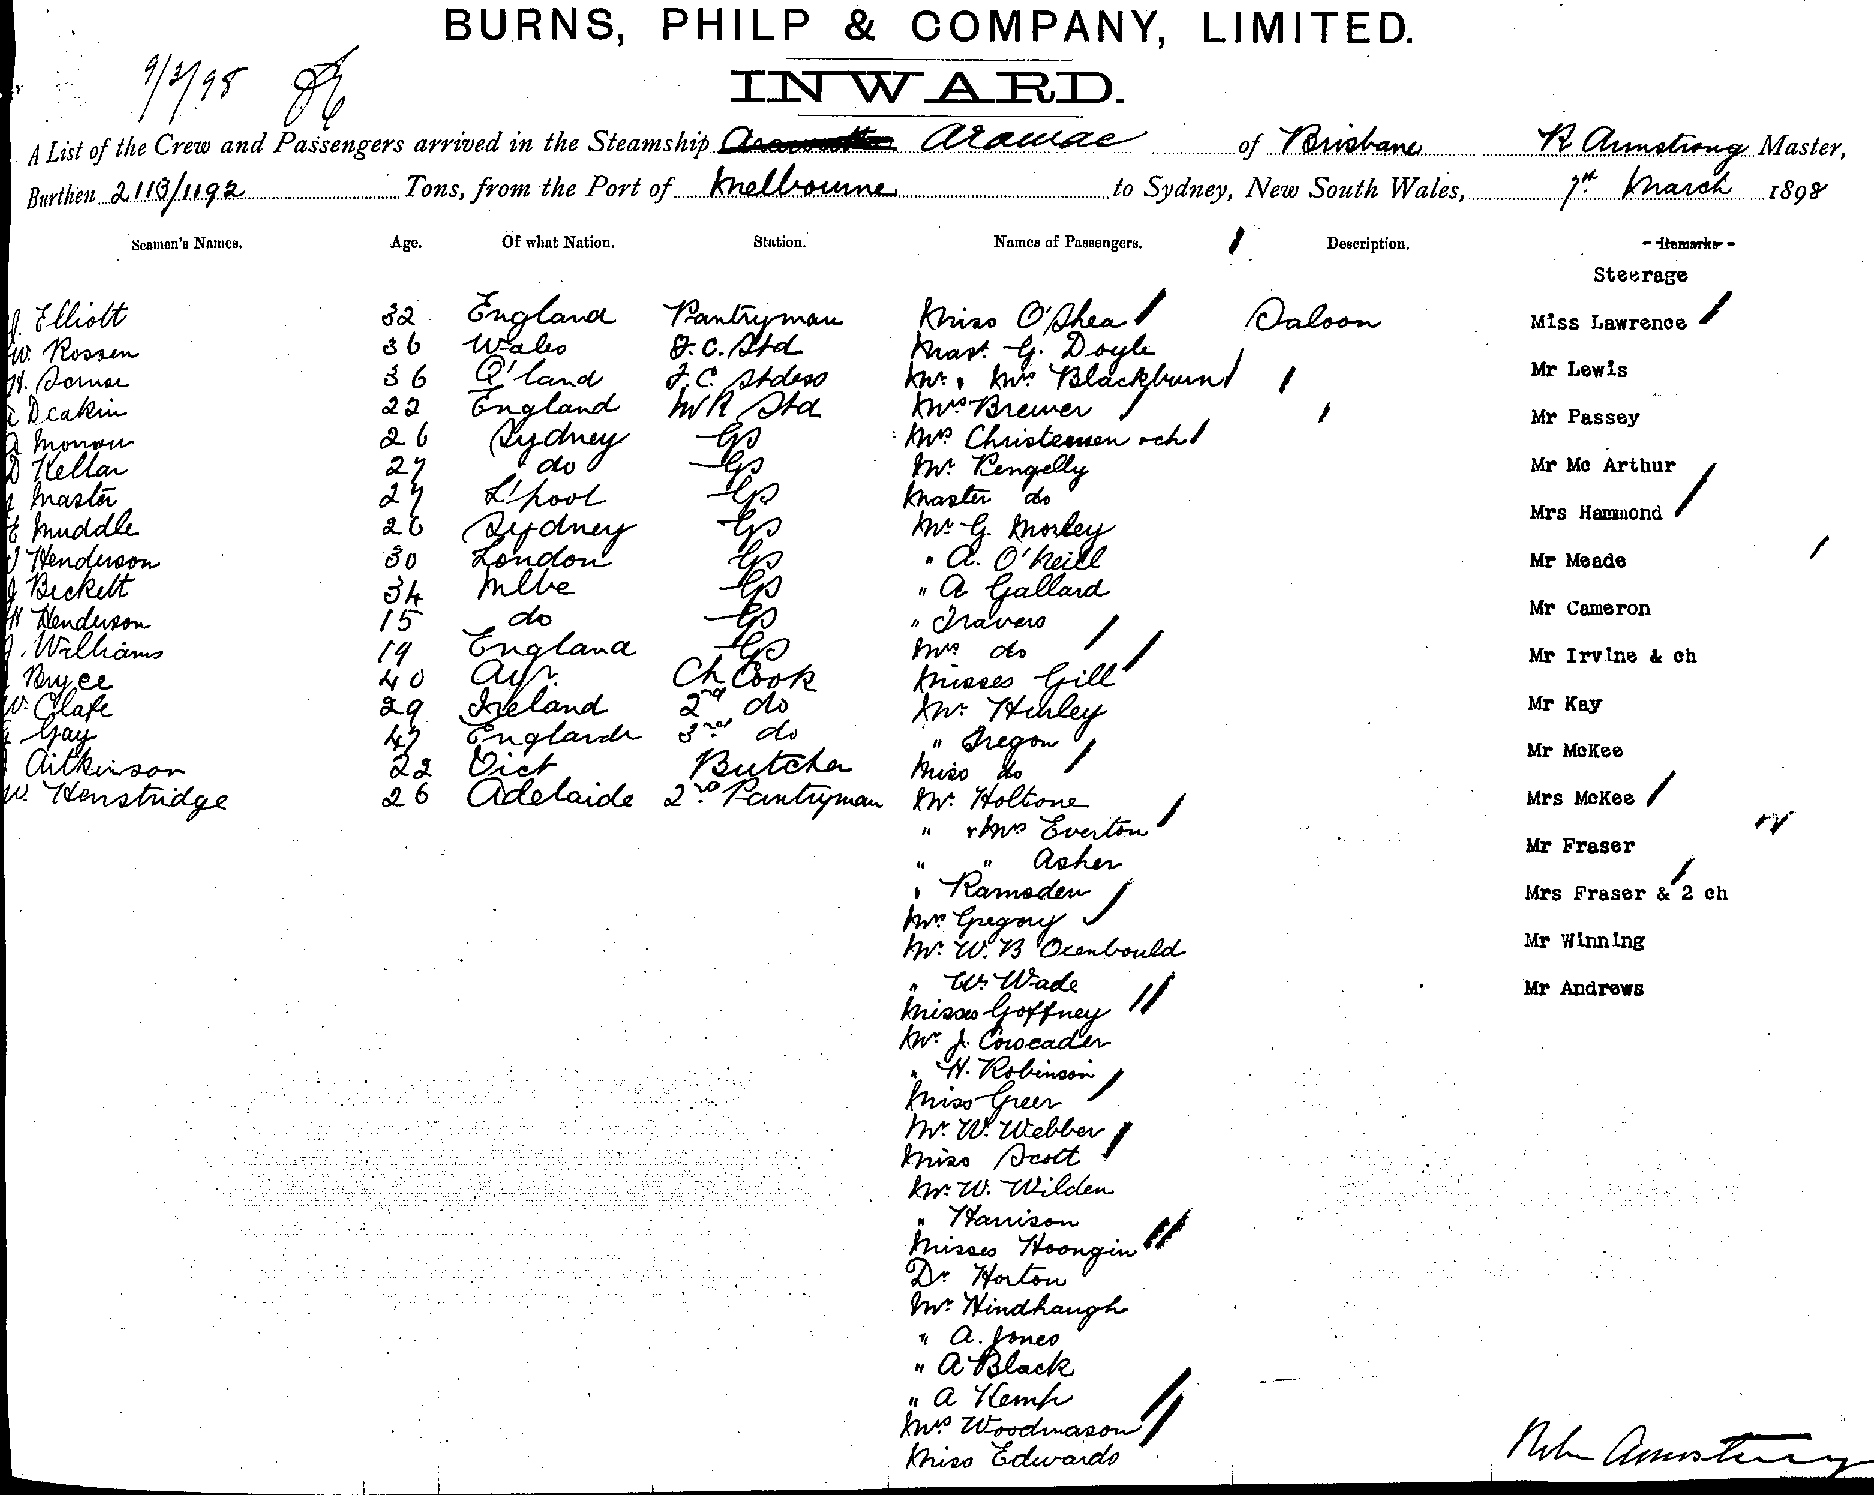 BURNS, PHILP & COMPANY, LIMITED.
9/3/98
INWARD.
A List of the Crew and Passengers arrived in the Steamship Aramac of Brisbane R Armstrong Master,
Burthen 2113/1192 Tons, from the Port of Melbourne to Sydney, New South Wales, 7th March 1898
Seamen's Names. Age. Of what Nation. Station. Names of Passengers. Description. Remarks
Steerage
J. Elliott 32 England Pantryman Miss O'Shea Saloon Miss Lawrence
W. Rossen 36 Wales F.C. Std Mast. G. Doyle
H. 36 Q'land F.C. Stdess Mr. Mrs Blackburn Mr Lewis
Deakin 22 England Std Mrs Brewer Mr Passey
26 Sydney GS Mrs Christensen & ch
D Kellar 27 do GS Mr. Pengelly Mr Mc Arthur
Master 27 L'pool GS Master do
E Muddle 26 Sydney GS Mr G. Morley Mrs Hammond
J Henderson 30 London GS " A. O'Neill Mr Meade
J Beckett 34 Mlbe GS " A Gallard
H Henderson 15 do GS " Travers Mr Cameron
J. Williams 19 England GS Mrs do Mr Irvine & ch
Bryce 40 Ayr. Ch Cook Misses Gill
W. Clafe 29 Ireland 2nd do Mr. Hurley Mr Kay
Gay 47 England 3rd do " Tregon Mr McKee
Aitkinson 22 Vict Butcher Miss do
W. Henstridge 26 Adelaide 2nd Pantryman Mr. Holtone Mrs McKee
" & Mrs Everton
" " Asher Mr Fraser
" Ramsden Mrs Fraser & 2 ch
Mrs Gregory
Mr. W. B Mr Winning
" W. Wade Mr Andrews
Misses Goffney
Mr. J.
" H. Robinson
Miss Greer
Mr. W. Webber
Miss Scott
Mr. W. Wilden
" Harrison
Misses Hoongin
Dr Horton
Mr. Hindhaugh
" A. Jones
" A Black
" A Kemp
Mrs Woodmason
Miss Edwards
Armstrong